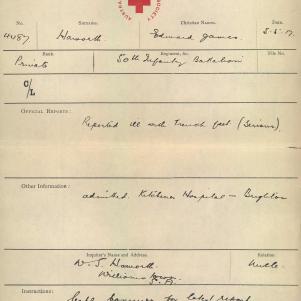 AUSTRA
SOCIETY
No.
Surname.
Christian Names.
Date.
4487
Haworth
Edward James.
5.5.17.
Rank.
Regiment, &c.
File No.
Private
50th Infantry Battalion
C/L
OFFICIAL REPORTS:
Reported ill with trench feet (serious)
Other Information:
admitted. Kitchener Hospital – Brighton
Inquirer's Name and Address.
Relation:
W. J. Haworth.
Uncle.
S. A.
Instructions:
for latest report